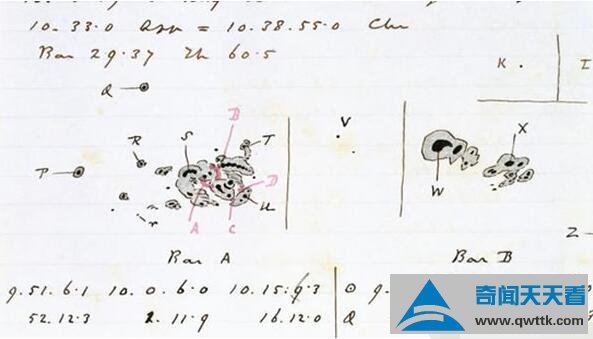 10.33.0 App = 10.38.55.0 Chr
Bar 29.37 Th 60.5
K I
Q
B
V
R S T
X
P
D
W
U
A C
Z
Bar A Bar B
9.51.6.1 10.0.6.0 10.15.9.3 ⊙ 9.
52.12.3 2.11.9 16.12.0 Q
奇闻天天看
www.qwttk.com